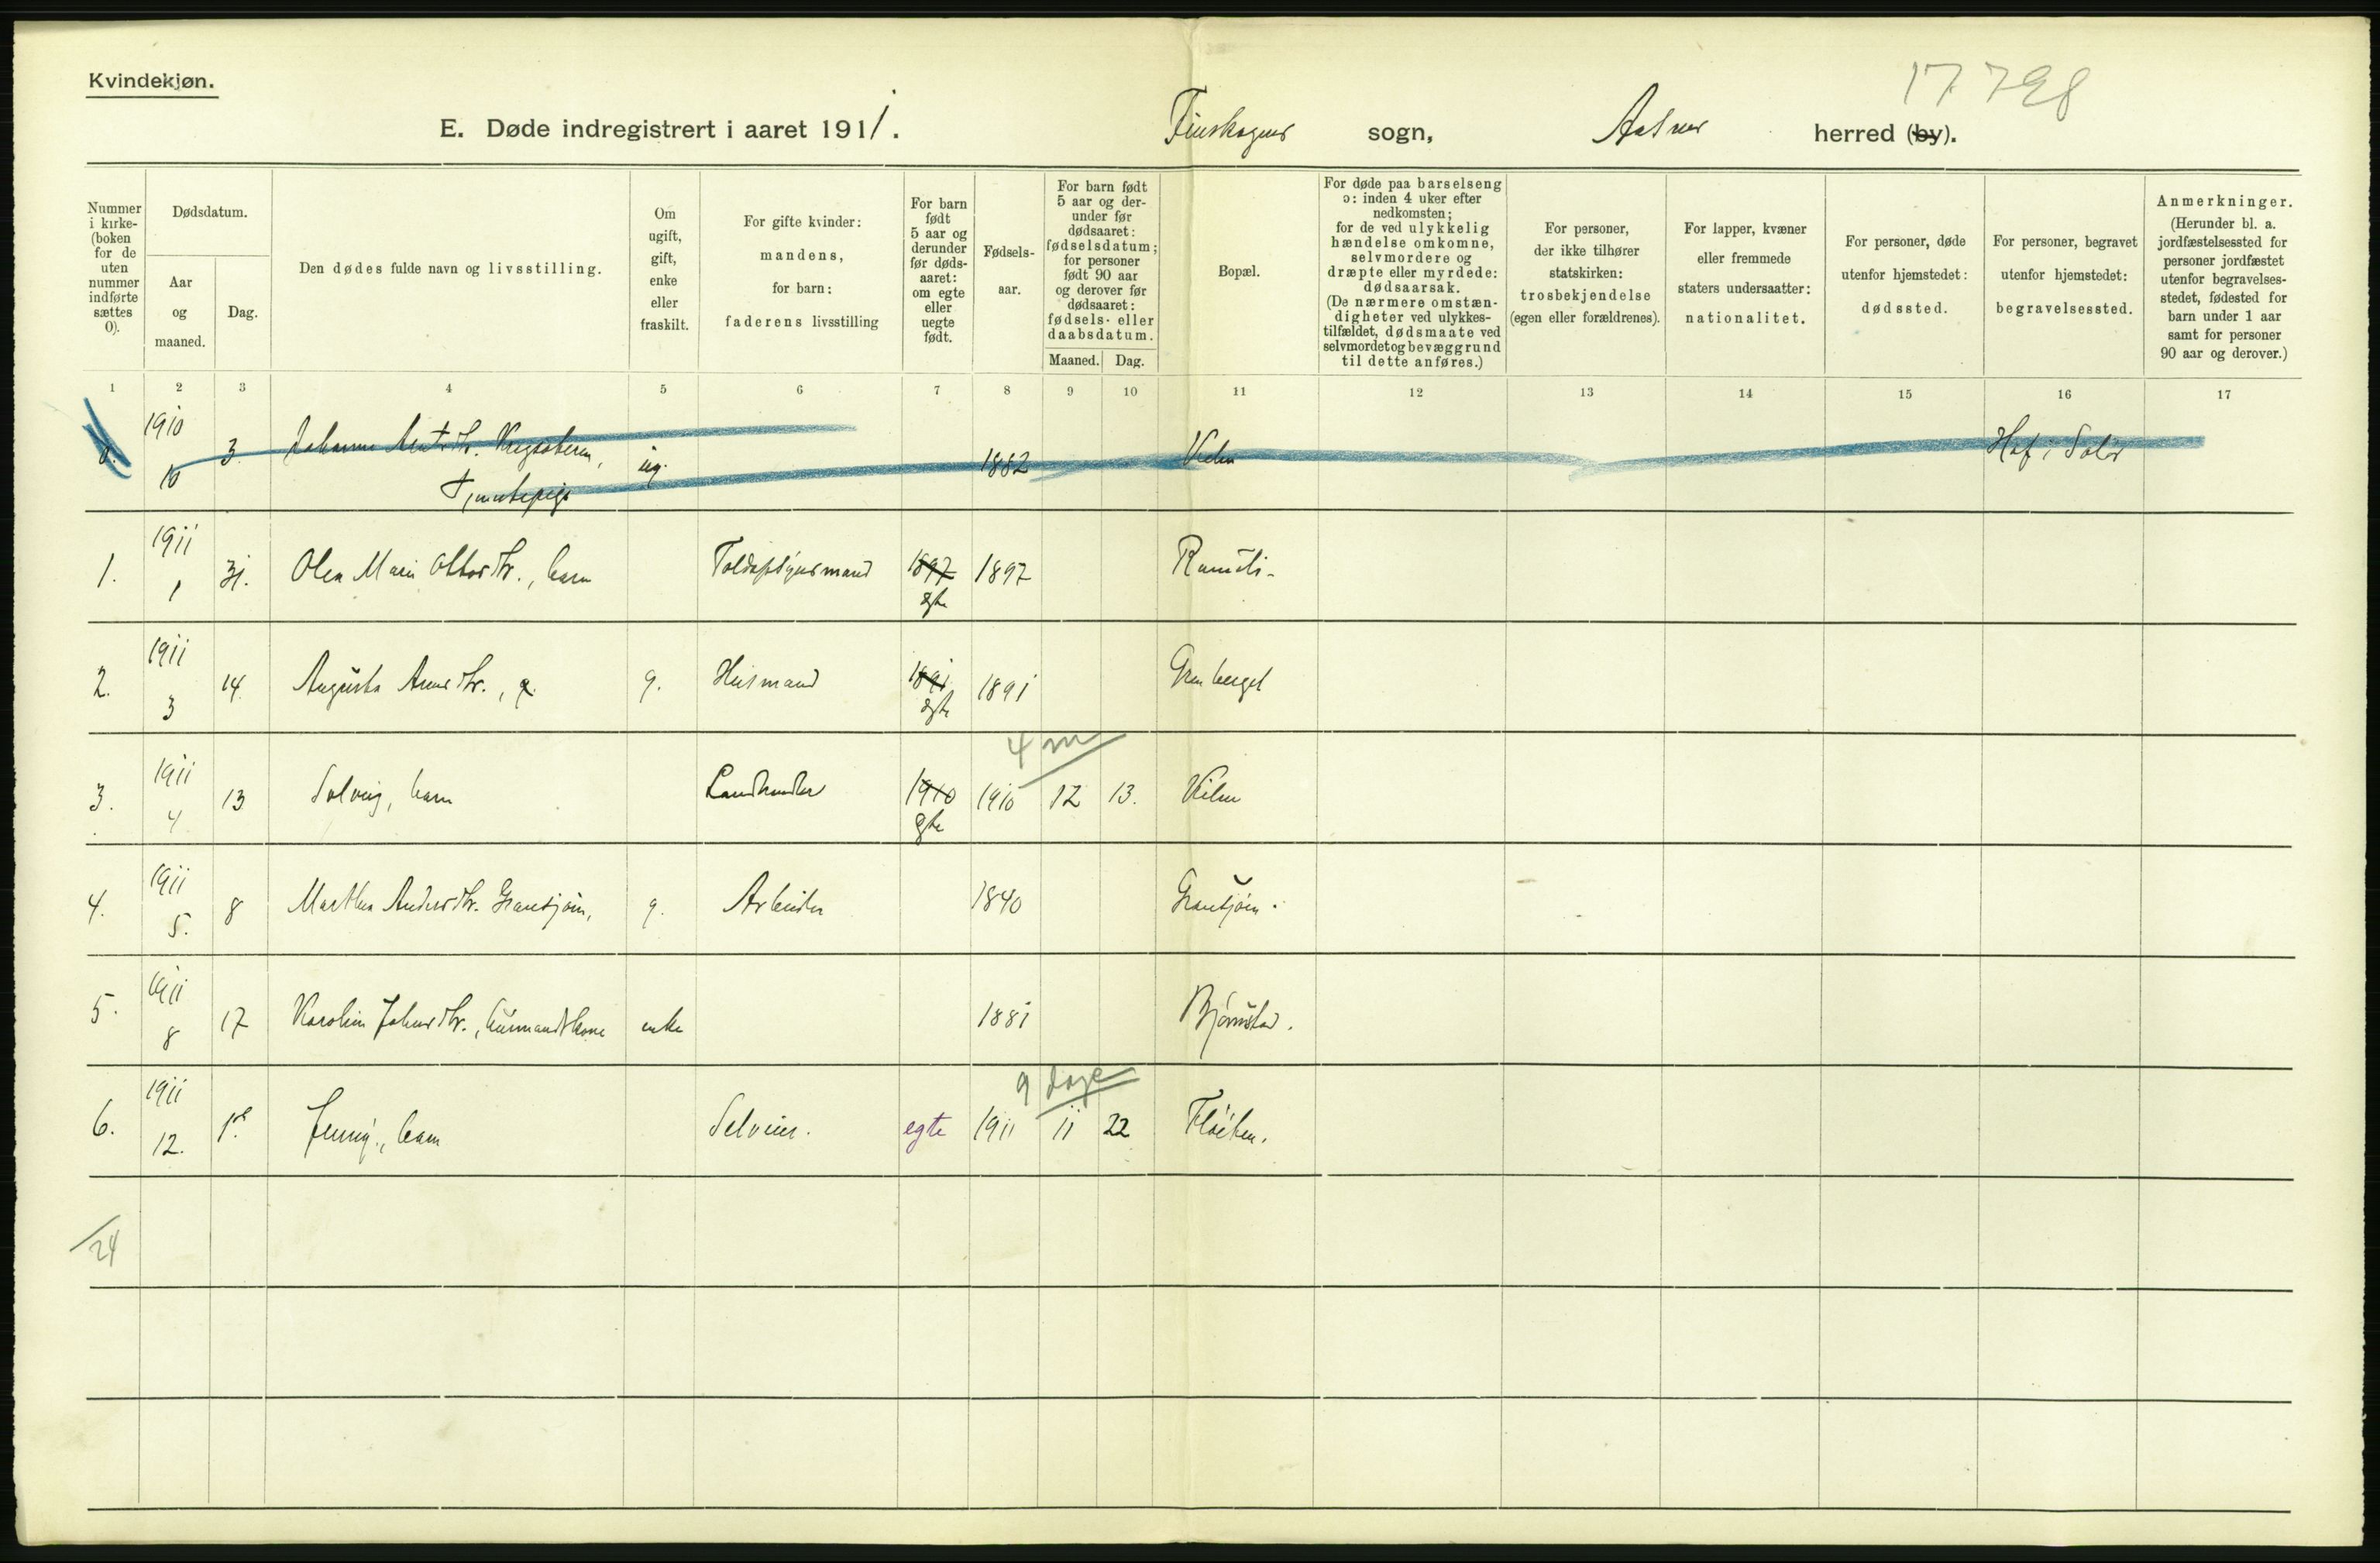 Kvindekjøn.
17 798
E. Døde indregistrert i aaret 1911. Finskogens sogn, Aasnes herred (by).
Nummer i kirke-(boken for de uten nummer indførte sættes 0).
Dødsdatum.
Aar og maaned.
Dag.
Den dødes fulde navn og livsstilling.
Om ugift, gift, enke eller fraskilt.
For gifte kvinder: mandens, for barn: faderens livsstilling
For barn født 5 aar og derunder før døds-aaret: om egte eller uegte født.
Fødsels-aar.
For barn født 5 aar og der-under før dødsaaret: fødselsdatum; for personer født 90 aar og derover før dødsaaret: fødsels- eller daabsdatum.
Maaned. Dag.
Bopæl.
For døde paa barselseng ɔ: inden 4 uker efter nedkomsten; for de ved ulykkelig hændelse omkomne, selvmordere og dræpte eller myrdede: dødsaarsak. (De nærmere omstæn-digheter ved ulykkes-tilfældet, dødsmaate ved selvmordet og bevæggrund til dette anføres.)
For personer, der ikke tilhører statskirken: trosbekjendelse (egen eller forældrenes).
For lapper, kvæner eller fremmede staters undersaatter: nationalitet.
For personer, døde utenfor hjemstedet: dødssted.
For personer, begravet utenfor hjemstedet: begravelsessted.
Anmerkninger. (Herunder bl. a. jordfæstelsessted for personer jordfæstet utenfor begravelses-stedet, fødested for barn under 1 aar samt for personer 90 aar og derover.)
1 2 3 4 5 6 7 8 9 10 11 12 13 14 15 16 17
0. 1910 10 3. Johanne ug. 1882 Hof i Solør
Tjenestepige
1. 1911 1 31. Olea Marie Ottosdtr., barn Toldopsynsmand 1897 egte 1897
2. 1911 3 14 Augusta Arnesdtr., g. g. Husmand 1891 egte 1891 Grenberget
4 m
3. 1911 4 13 Solveig, barn Landhandler 1910 egte 1910 12 13.
4. 1911 5. 8 Marthea Andersdtr. Gransjøen, g. Arbeider 1840 Gransjøen.
5. 1911 8 17 Karoline Johnsdtr., husmandskone enke 1881 Bjørnstad.
9 dage
6. 1911 12. 1ste Jenny., barn Selveier. egte 1911 11 22 Fløiten.
24